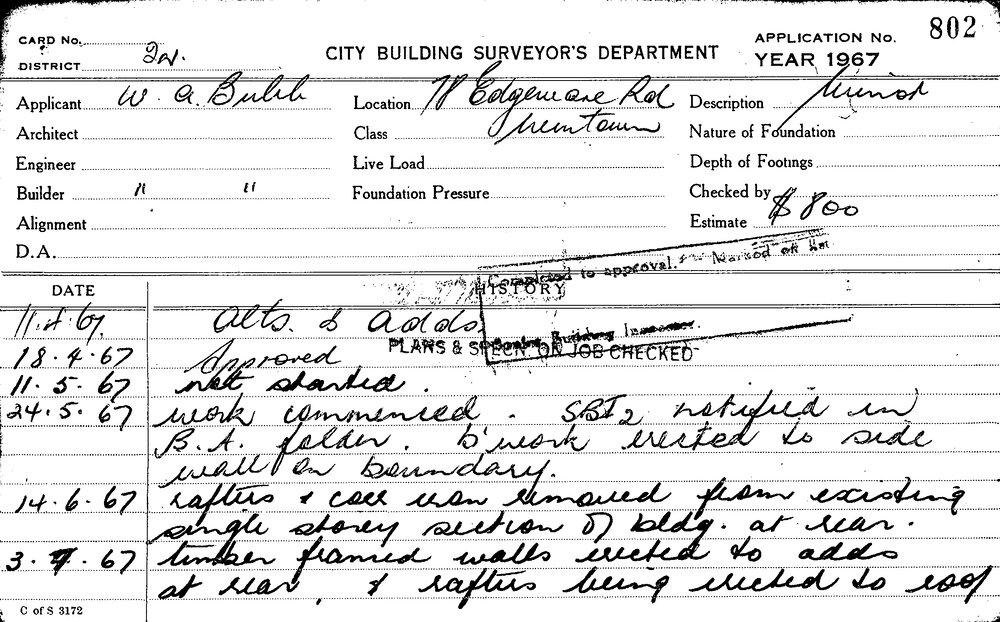 CARD No.
802
DISTRICT 2w.
CITY BUILDING SURVEYOR'S DEPARTMENT
APPLICATION No.
YEAR 1967
Applicant W. A. Bubb
Location 78 Edgeware Rd
Description Minor
Architect
Class Newtown
Nature of Foundation
Engineer
Live Load
Depth of Footings
Builder " "
Foundation Pressure
Checked by
Alignment
Estimate $800
D.A.
Completed to approval. Marked off
DATE
HISTORY
11.4.67. Alts. & adds.
Building Inspector.
PLANS & SPECN. ON JOB CHECKED
18.4.67 Approved
11.5.67 not started.
24.5.67 work commenced. SBI2 notified in
B.A. folder. b'work erected to side
wall on boundary.
14.6.67 rafters & corr iron removed from existing
single storey section of bldg. at rear.
3.7.67 timber framed walls erected to adds
at rear, & rafters being erected to roof
C of S 3172